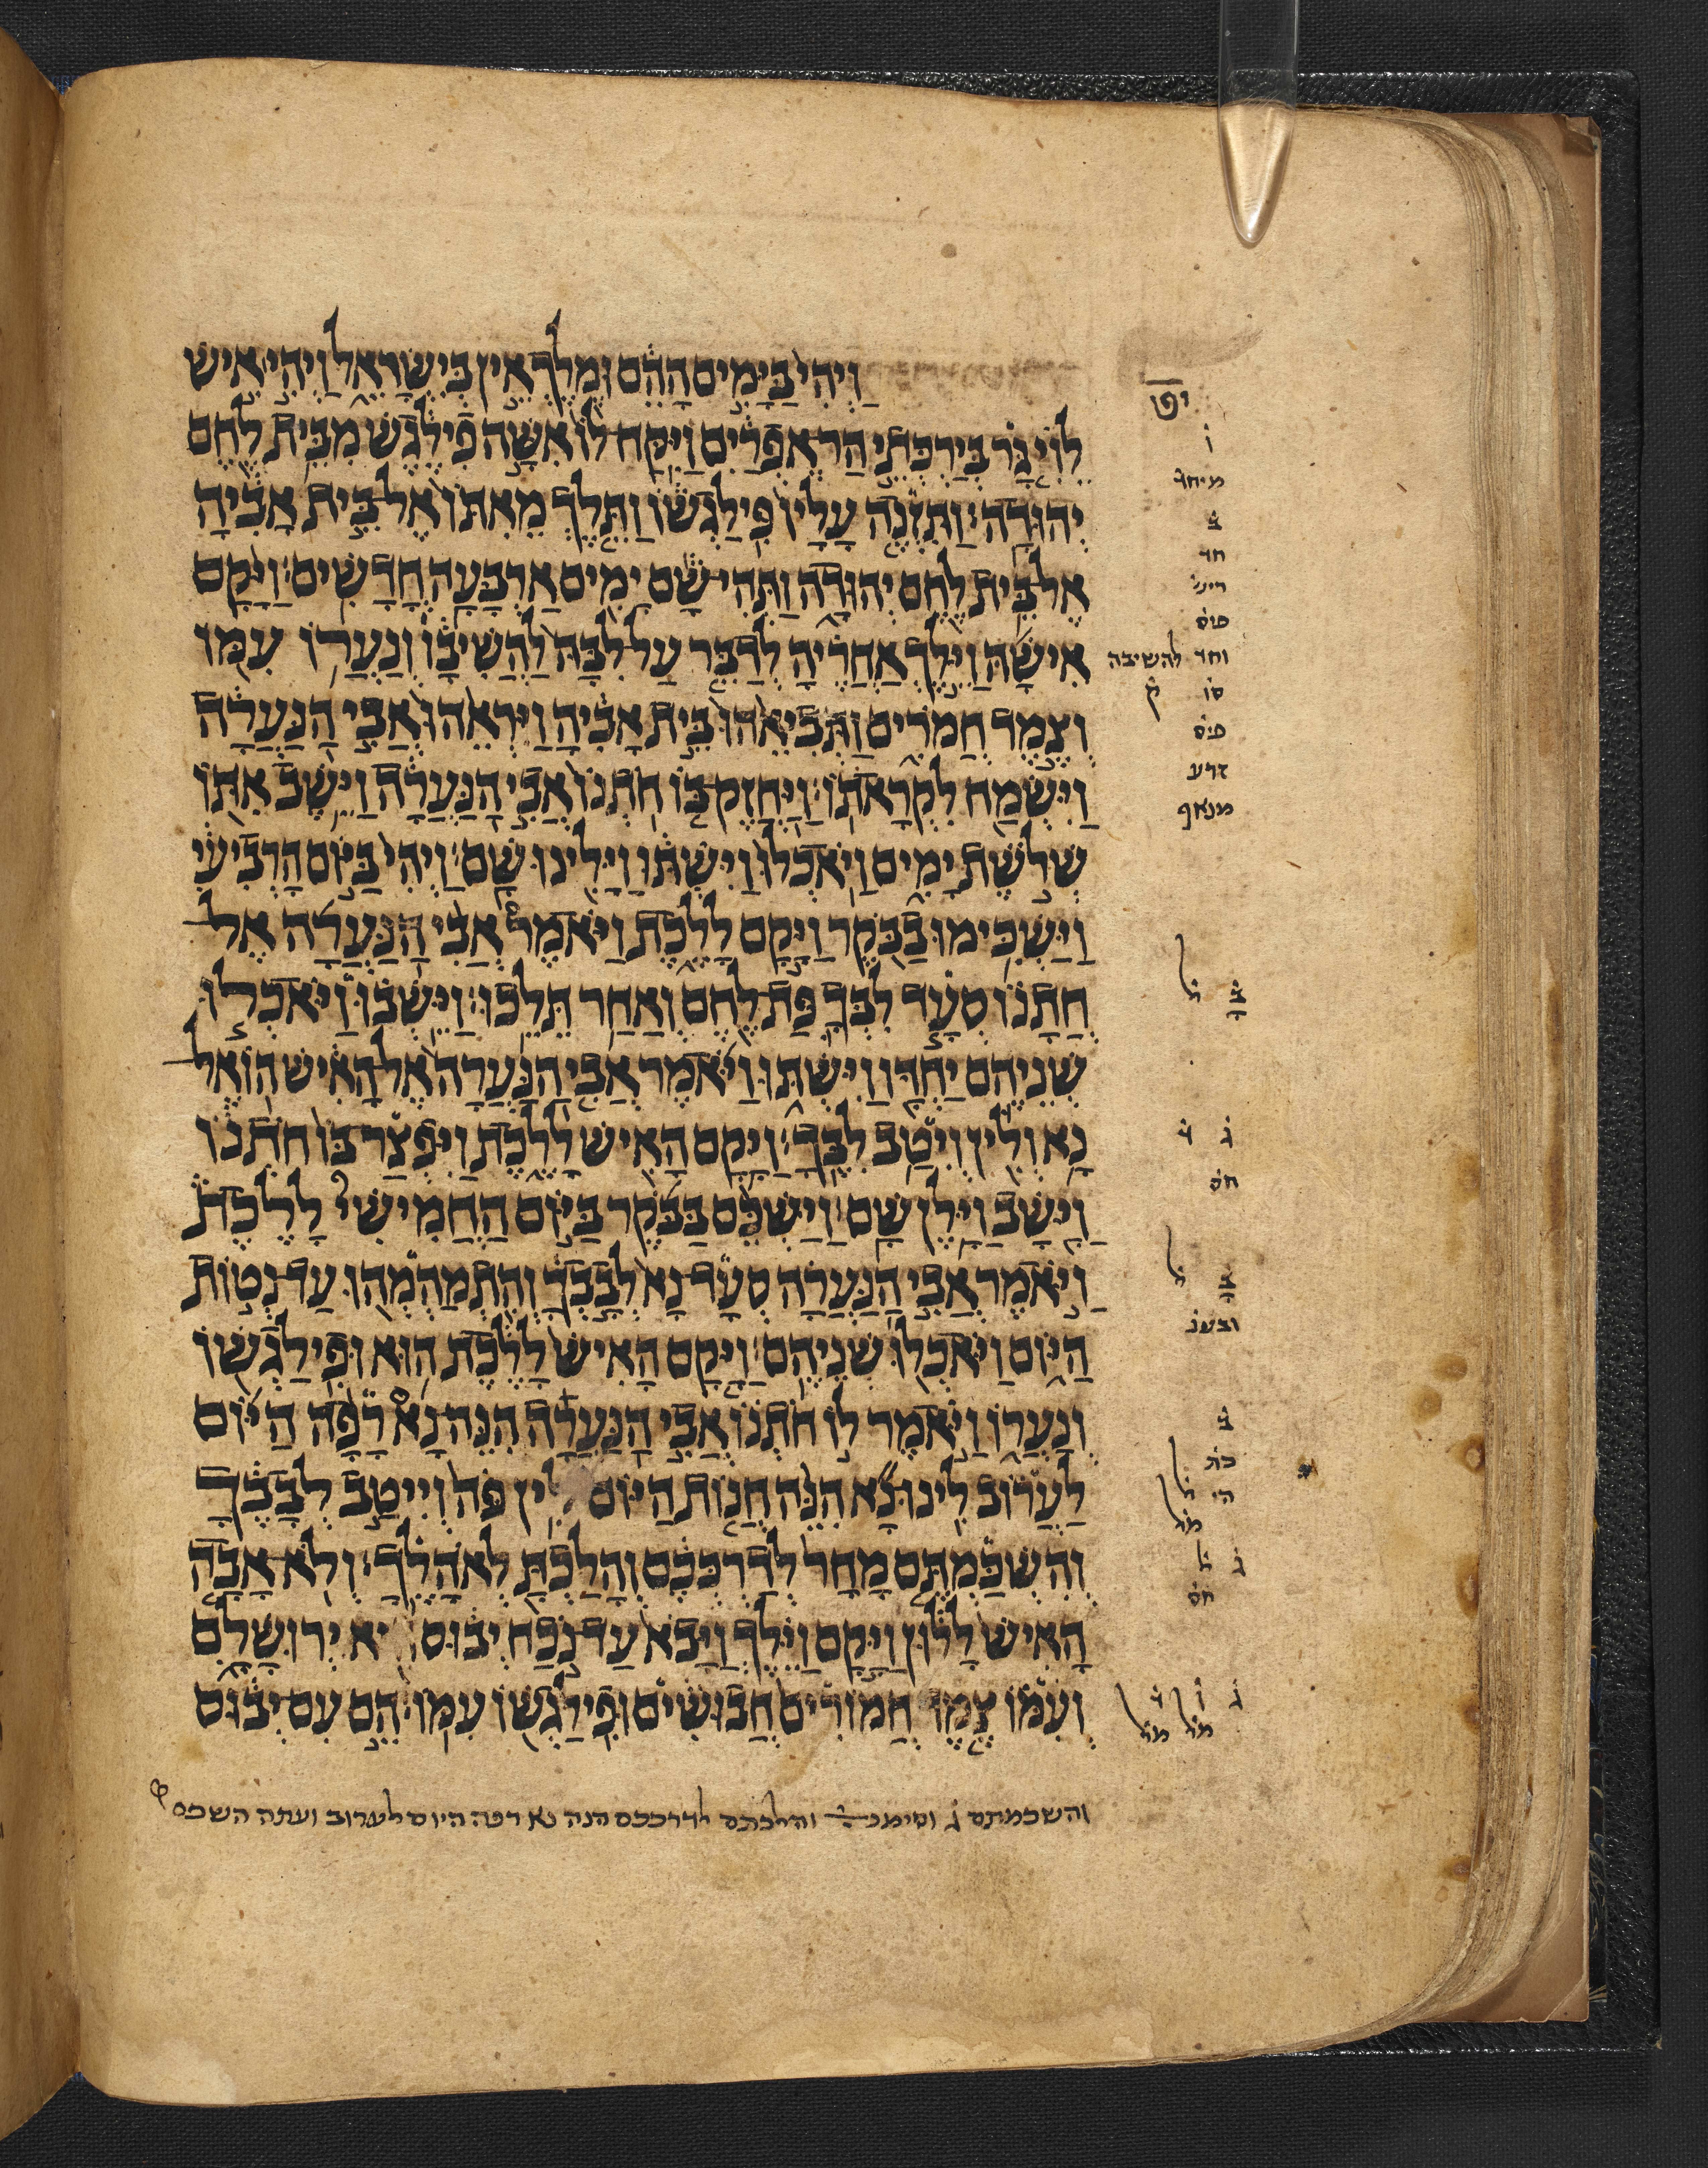 וַיְהִי בַּיָּמִים הָהֵם וּמֶלֶךְ אֵין בְּיִשְׂרָאֵל וַיְהִי אִישׁ
יט
לֵוִי גָּר בְּיַרְכְּתֵי הַר אֶפְרַיִם וַיִּקַּח לוֹ אִשָּׁה פִילֶגֶשׁ מִבֵּית לֶחֶם
יְהוּדָה׃ וַתִּזְנֶה עָלָיו פִּילַגְשׁוֹ וַתֵּלֶךְ מֵאִתּוֹ אֶל בֵּית אָבִיהָ
אֶל בֵּית לֶחֶם יְהוּדָה וַתְּהִי שָׁם יָמִים אַרְבָּעָה חֳדָשִׁים׃ וַיָּקָם
אִישָׁהּ וַיֵּלֶךְ אַחֲרֶיהָ לְדַבֵּר עַל לִבָּהּ לַהֲשִׁיבָו וְנַעֲרוֹ עִמּוֹ
וחד להשיבה
ק
וְצֶמֶד חֲמֹרִים וַתְּבִיאֵהוּ בֵּית אָבִיהָ וַיִּרְאֵהוּ אֲבִי הַנַּעֲרָה
וַיִּשְׂמַח לִקְרָאתוֹ׃ וַיֶּחֱזַק בּוֹ חֹתְנוֹ אֲבִי הַנַּעֲרָה וַיֵּשֶׁב אִתּוֹ
שְׁלֹשֶׁת יָמִים וַיֹּאכְלוּ וַיִּשְׁתּוּ וַיָּלִינוּ שָׁם׃ וַיְהִי בַּיּוֹם הָרְבִיעִי
וַיַּשְׁכִּימוּ בַבֹּקֶר וַיָּקָם לָלֶכֶת וַיֹּאמֶר אֲבִי הַנַּעֲרָה אֶל
חֲתָנוֹ סְעָד לִבְּךָ פַּת לֶחֶם וְאַחַר תֵּלֵכוּ׃ וַיֵּשְׁבוּ וַיֹּאכְלוּ
שְׁנֵיהֶם יַחְדָּו וַיִּשְׁתּוּ וַיֹּאמֶר אֲבִי הַנַּעֲרָה אֶל הָאִישׁ הוֹאֶל
נָא וְלִין וְיִטַב לִבֶּךָ׃ וַיָּקָם הָאִישׁ לָלֶכֶת וַיִּפְצַר בּוֹ חֹתְנוֹ
וַיָּשָׁב וַיָּלֶן שָׁם׃ וַיַּשְׁכֵּם בַּבֹּקֶר בַּיּוֹם הַחֲמִישִׁי לָלֶכֶת
וַיֹּאמֶר אֲבִי הַנַּעֲרָה סְעָד נָא לְבָבְךָ וְהִתְמַהְמְהוּ עַד נְטוֹת
הַיּוֹם וַיֹּאכְלוּ שְׁנֵיהֶם׃ וַיָּקָם הָאִישׁ לָלֶכֶת הוּא וּפִילַגְשׁוֹ
וְנַעֲרוֹ וַיֹּאמֶר לוֹ חֹתְנוֹ אֲבִי הַנַּעֲרָה הִנֵּה נָא רָפָה הַיּוֹם
לַעֲרוֹב לִינוּ נָא הִנֵּה חֲנוֹת הַיּוֹם לִין פֹּה וְיִיטַב לְבָבֶךָ
וְהִשְׁכַּמְתֶּם מָחָר לְדַרְכְּכֶם וְהָלַכְתָּ לְאֹהָלֶךָ׃ וְלֹא אָבָה
הָאִישׁ לָלוּן וַיָּקָם וַיֵּלֶךְ וַיָּבֹא עַד נֹכַח יְבוּס הִיא יְרוּשָׁלָ͏ִם
וְעִמּוֹ צֶמֶד חֲמוֹרִים חֲבוּשִׁים וּפִילַגְשׁוֹ עִמּוֹ׃ הֵם עִם יְבוּס
והשכמתם ג וסימנ והלכתם לדרככם הנה נא רפה היום לערוב ועתה השכם